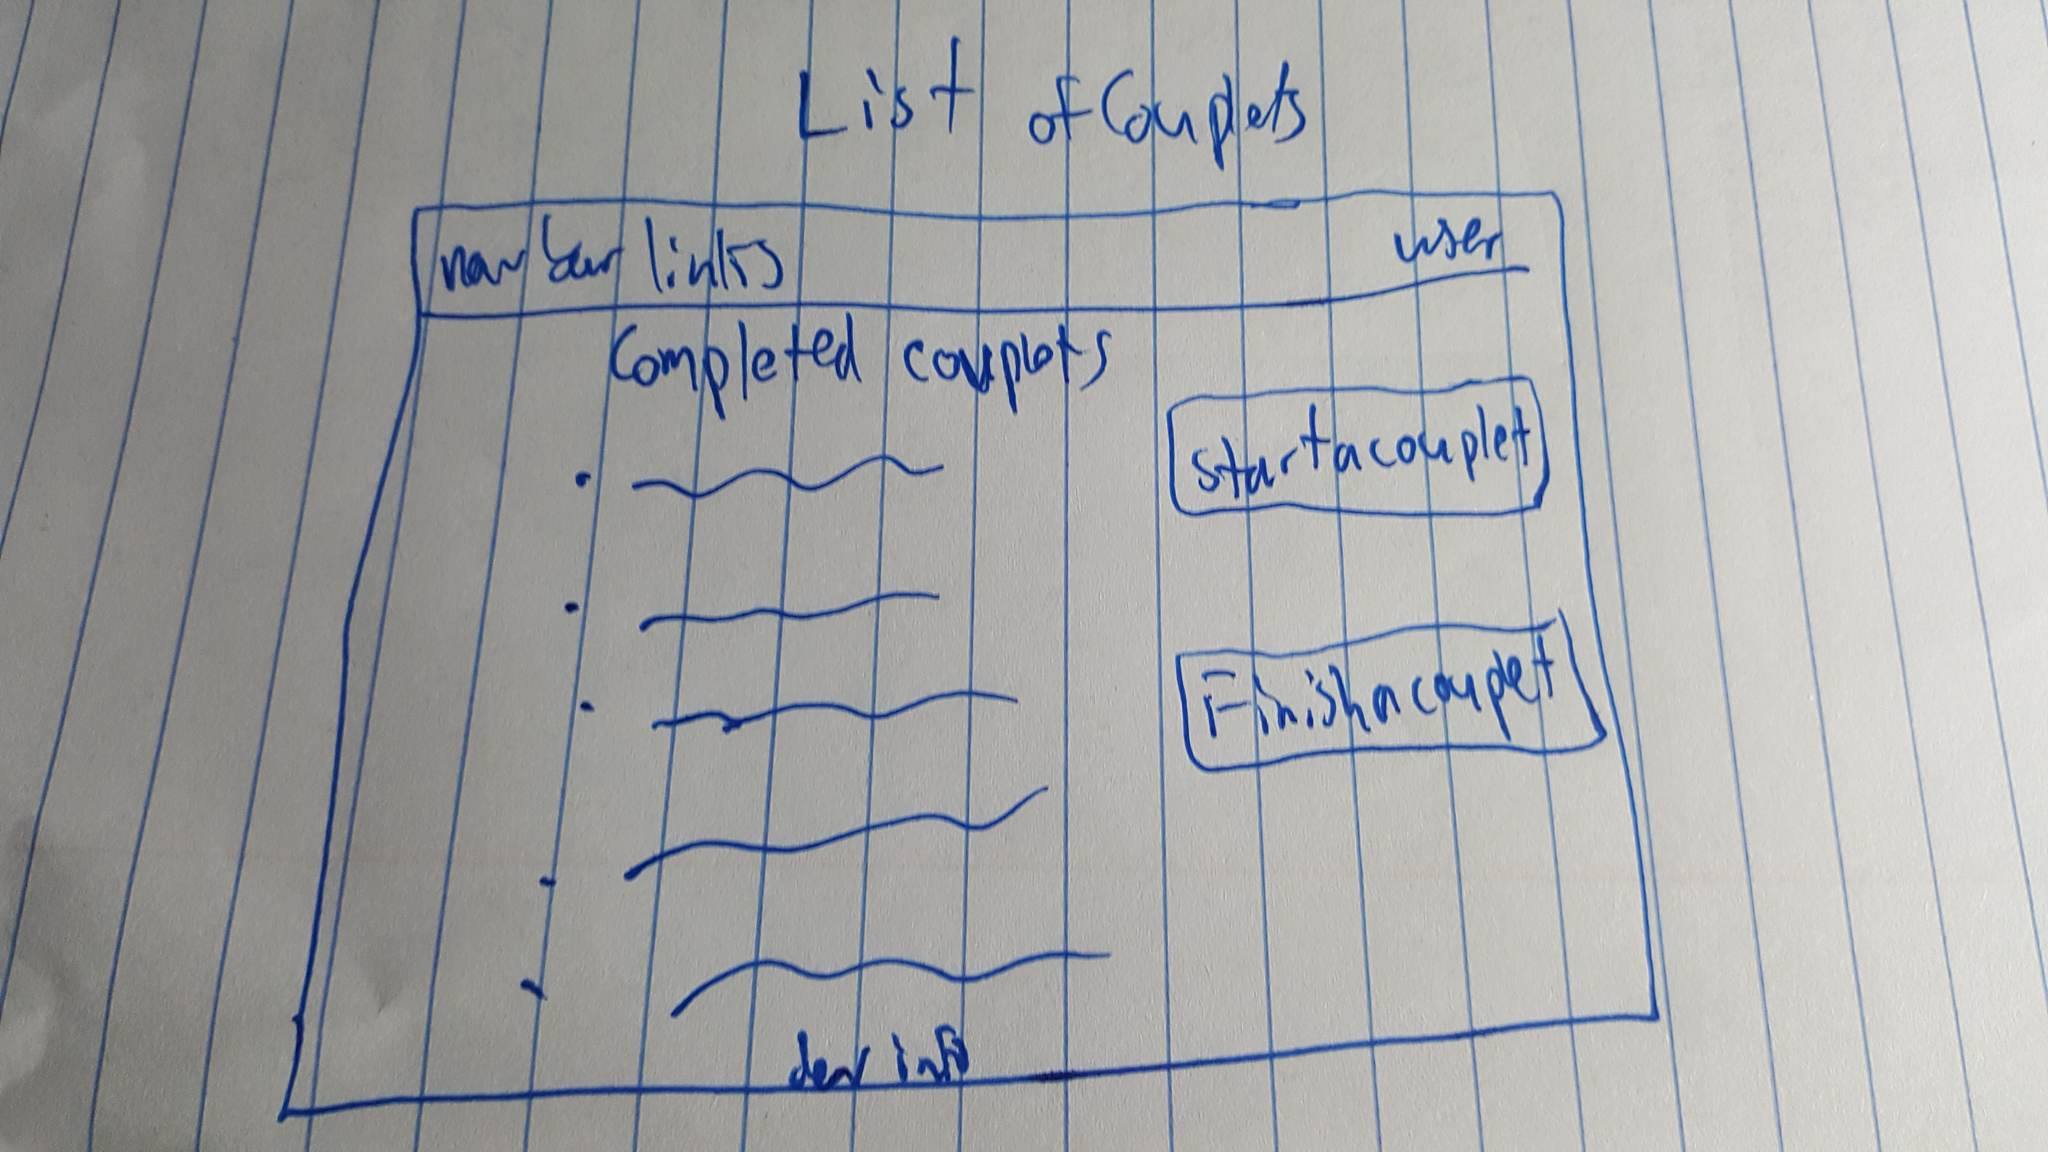 List of Couplets
navbar links user
Completed couplets
start a couplet
Finish a couplet
dev info